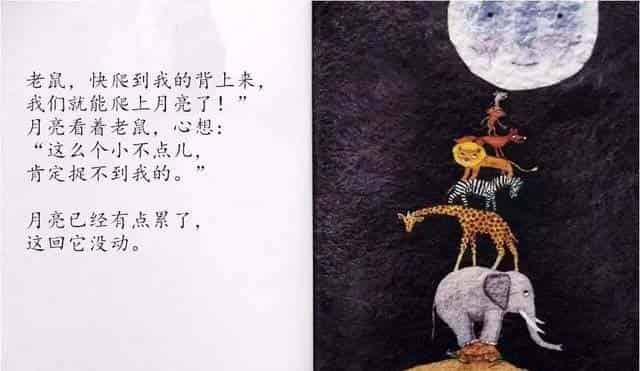 老鼠，快爬到我的背上来，
我们就能爬上月亮了！”
月亮看着老鼠，心想：
“这么个小不点儿，
肯定捉不到我的。”
月亮已经有点累了，
这回它没动。